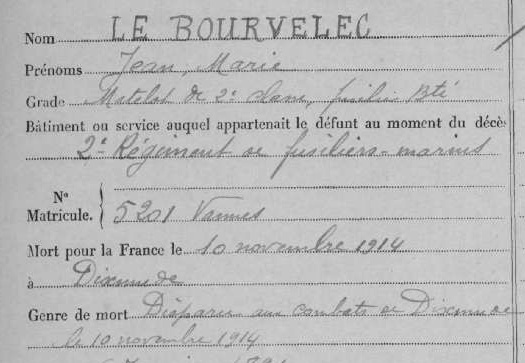 Nom LE BOURVELEC
Prénoms Jean, Marie
Grade Matelot de 2e classe, fusilier Bté
Bâtiment ou service auquel appartenait le défunt au moment du décès
2e Régiment de fusiliers-marins
No
Matricule. 5201 Vannes
Mort pour la France le 10 novembre 1914
à Dixmude
Genre de mort Disparu aux combats de Dixmude
le 10 novembre 1914